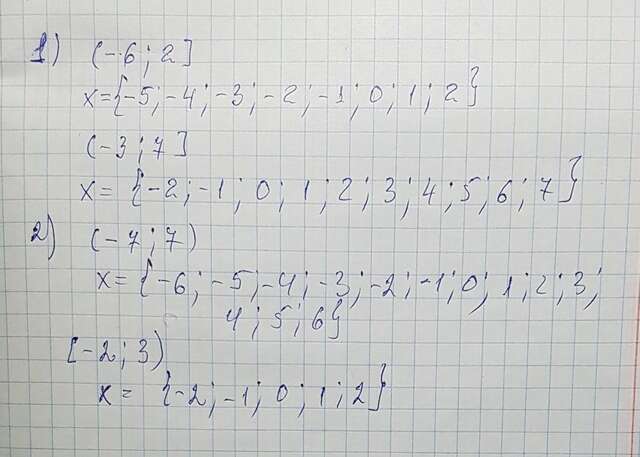 1) (-6; 2]
x={-5; -4; -3; -2; -1; 0; 1; 2}
(-3; 7]
x= {-2; -1; 0; 1; 2; 3; 4; 5; 6; 7}
2) (-7; 7)
x={-6; -5; -4; -3; -2; -1; 0; 1; 2; 3;
4; 5; 6}
[-2; 3)
x= {-2; -1; 0; 1; 2}